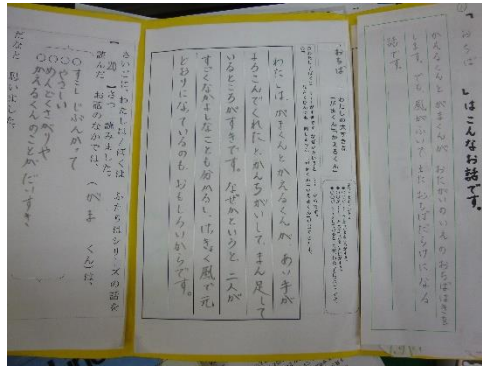 「おちば　」はこんなお話です。
かえるくんとがまくんが おたがいのいえの おちばはきを
します。でも風がふいてまたおちばだらけになる
話です。
「おちば」
わたしの大すきな
わたしは、がまくんとかえるくんが、あい手が
よろこんでくれたとかんちがいして、まん足して
いるところがすきです。なぜかというと、二人が
すごくなかよしなことも分かるし、けっきょく風で元
どおりになっているのも、おもしろいからです。
さいごに、わたし ぼくは ふたりはシリーズの話を
さつ 読みました。
読んだ お話のなかでは、（がま　くん）は、
○すこし じぶんかって
○やさしい
○めんどくさがりや
○かえるくんのことがだいすき
だなと 思いました。